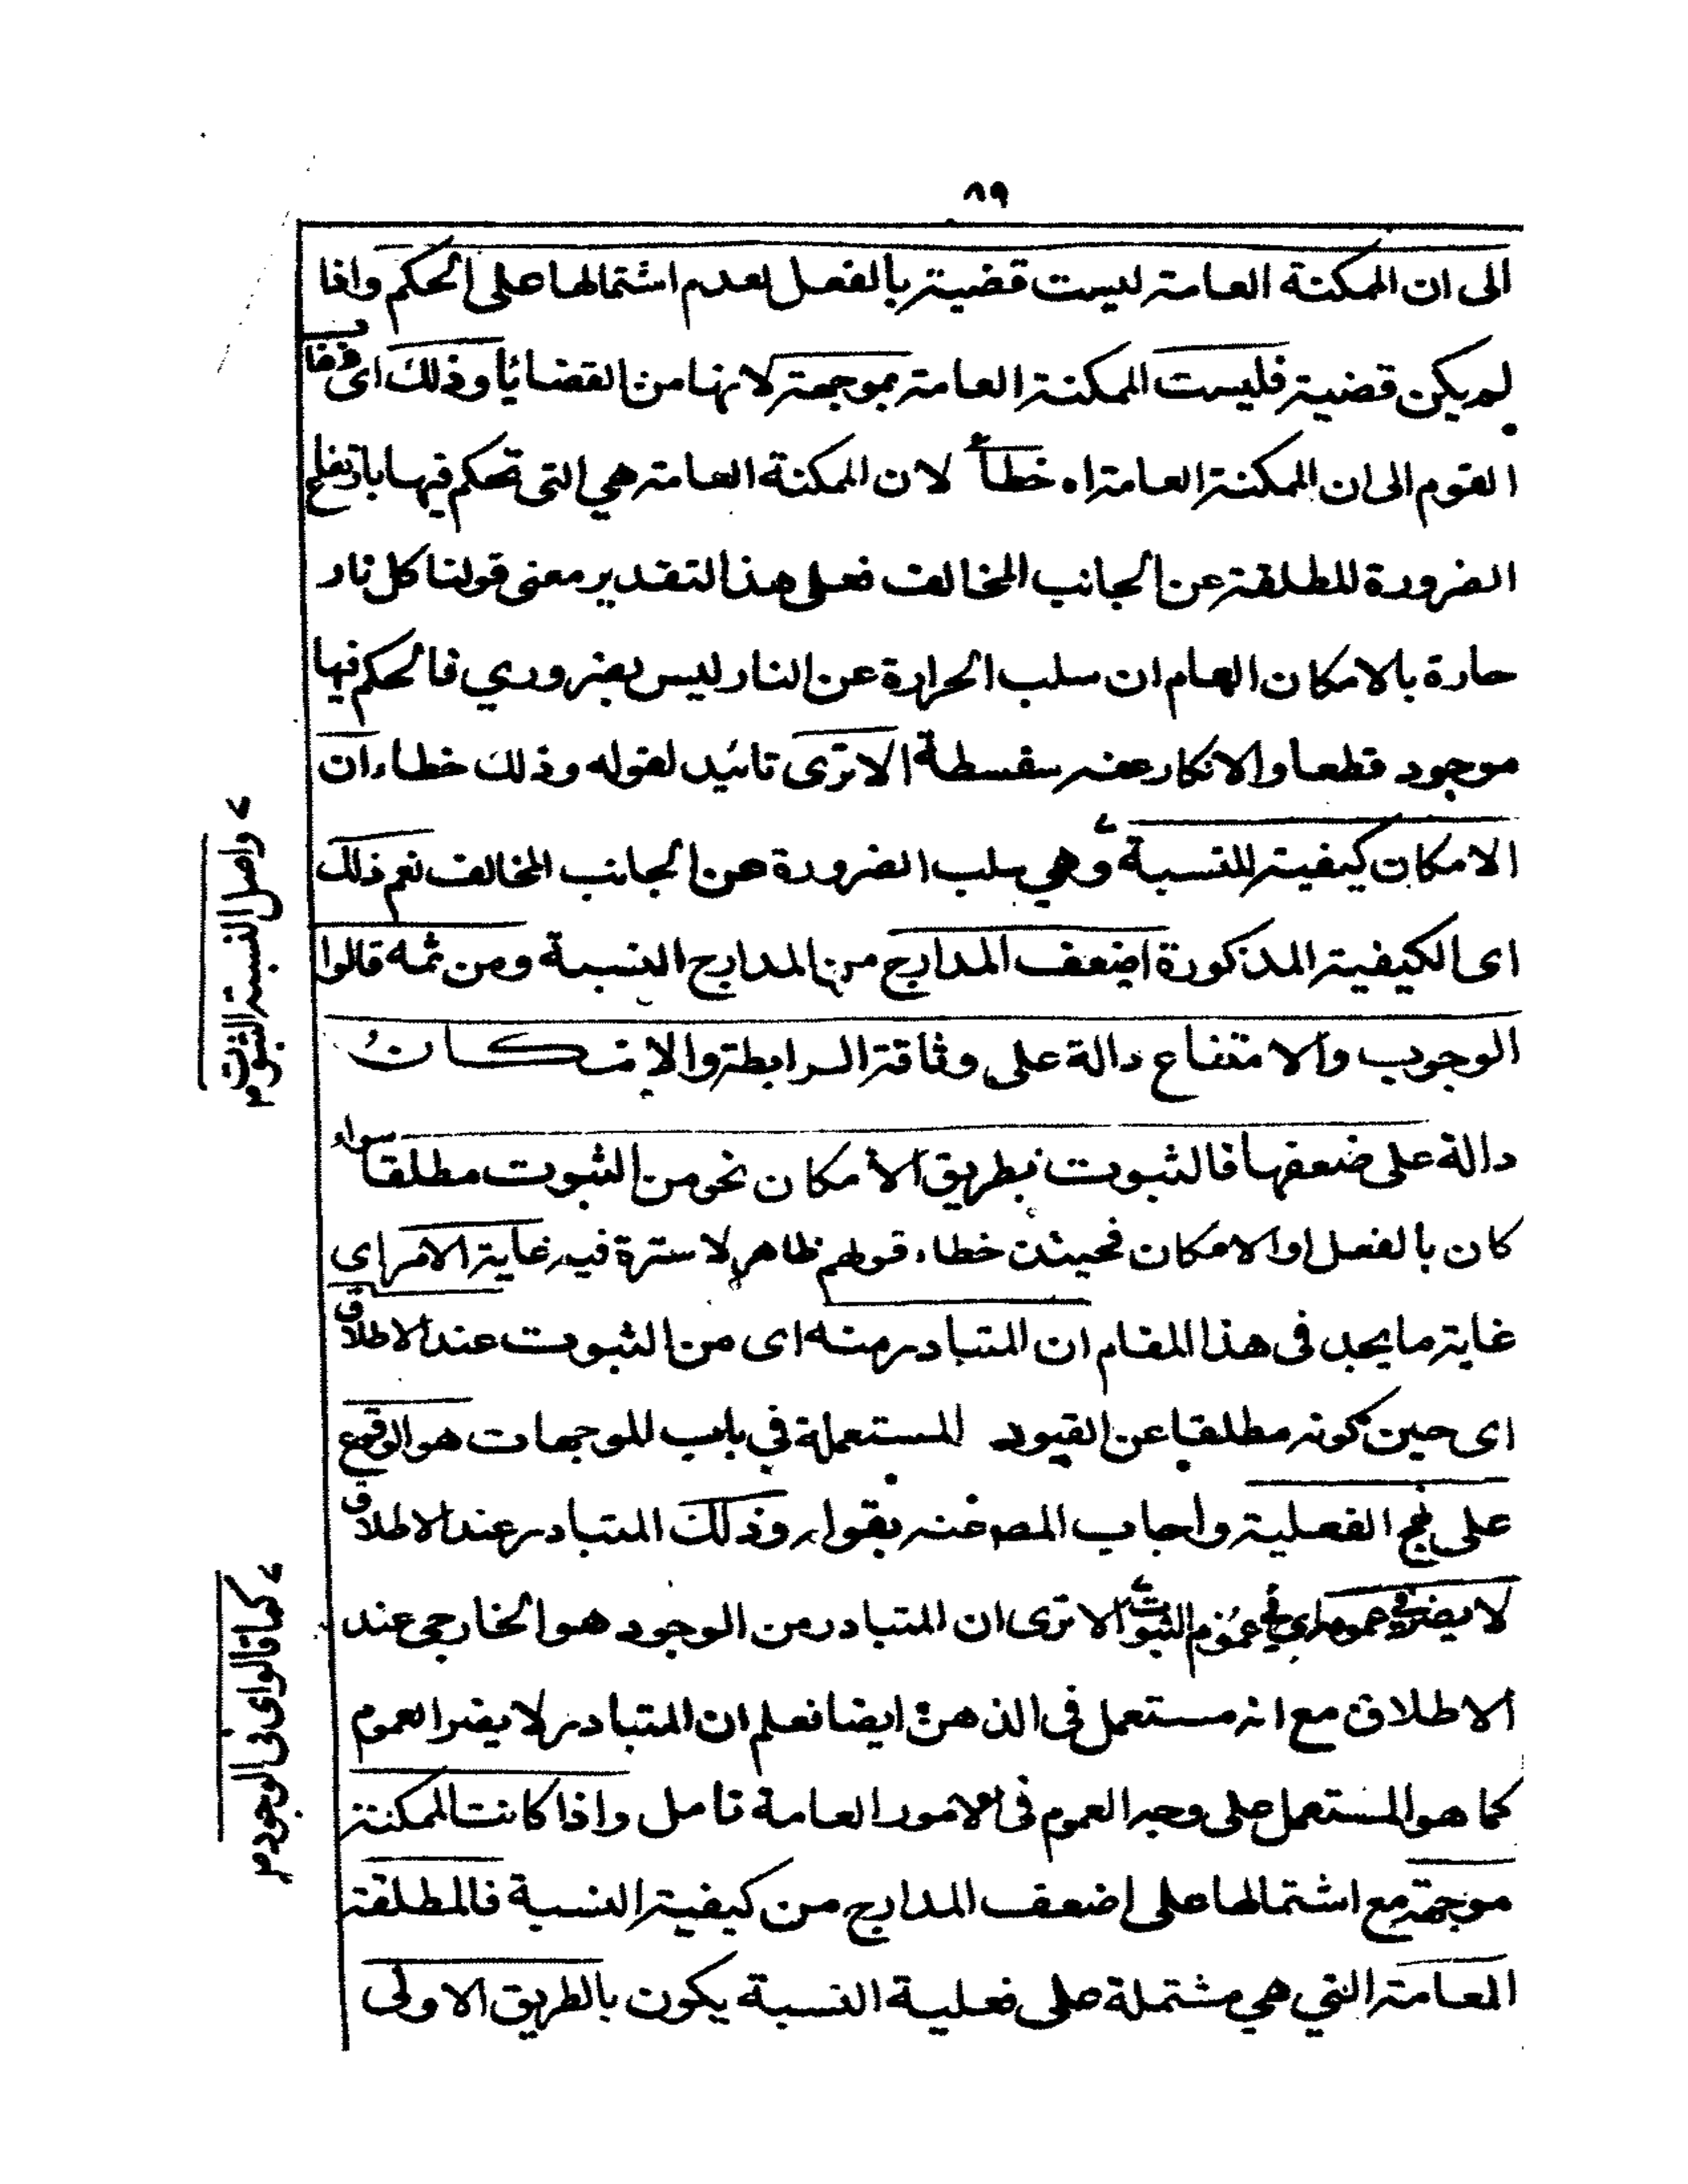 ٨٩
الى ان الممكنة العامة ليست قضية بالفعل لعدم اشتمالها على الحكم واذا
لم يكن قضية فليست الممكنة العامة بموجهة لانها من القضايا وذلك اى
القوم الى ان الممكنة العامة اه خطأ لان الممكنة العامة هي التى تحكم فيها بارتفاع
الضرورة المطلقة عن الجانب المخالف فعلى هذا التقدير معنى قولنا كل نار
حارة بالامكان العام ان سلب الحرارة عن النار ليس بضروري فالحكم فيها
موجود قطعا والانكار عنه سفسطة الا ترى تائيد لقوله وذلك خطاء ان
الامكان كيفية للنسبة وهي سلب الضرورة عن الجانب المخالف نعم ذلك
اى الكيفية المذكورة اضعف المدارج من المدارج النسبة ومن ثمه قالوا
الوجوب والامتناع دالة على وثاقة الرابطة والامكان
دالة على ضعفها فالثبوت بطريق الامكان نحو من الثبوت مطلقا سواء
كان بالفعل او الامكان فحينئذ خطاء قولهم ظاهر لا سترة فيه غاية الامر اى
غاية ما يجد فى هذا المقام ان المتبادر منه اى من الثبوت عند الاطلاق
اى حين كونه مطلقا عن القيود المستعملة في باب الموجهات هو الوقوع
على نهج الفعلية واجاب المص عنه بقوله وذلك المتبادر عند الاطلاق
لا يضر فى عمومه اى في عموم الثبوت الا ترى ان المتبادر من الوجود هو الخارجي عند
الاطلاق مع انه مستعمل فى الذهن ايضا فعلم ان المتبادر لا يضر العموم
كما هو المستعمل على وجه العموم فى الامور العامة تامل واذا كانت الممكنة
موجهة مع اشتمالها على اضعف المدارج من كيفية النسبة فالمطلقة
العامة التي هي مشتملة على فعلية النسبة يكون بالطريق الاولى
واصل النسبة الثبوت
كما قالو اى فى الوجود